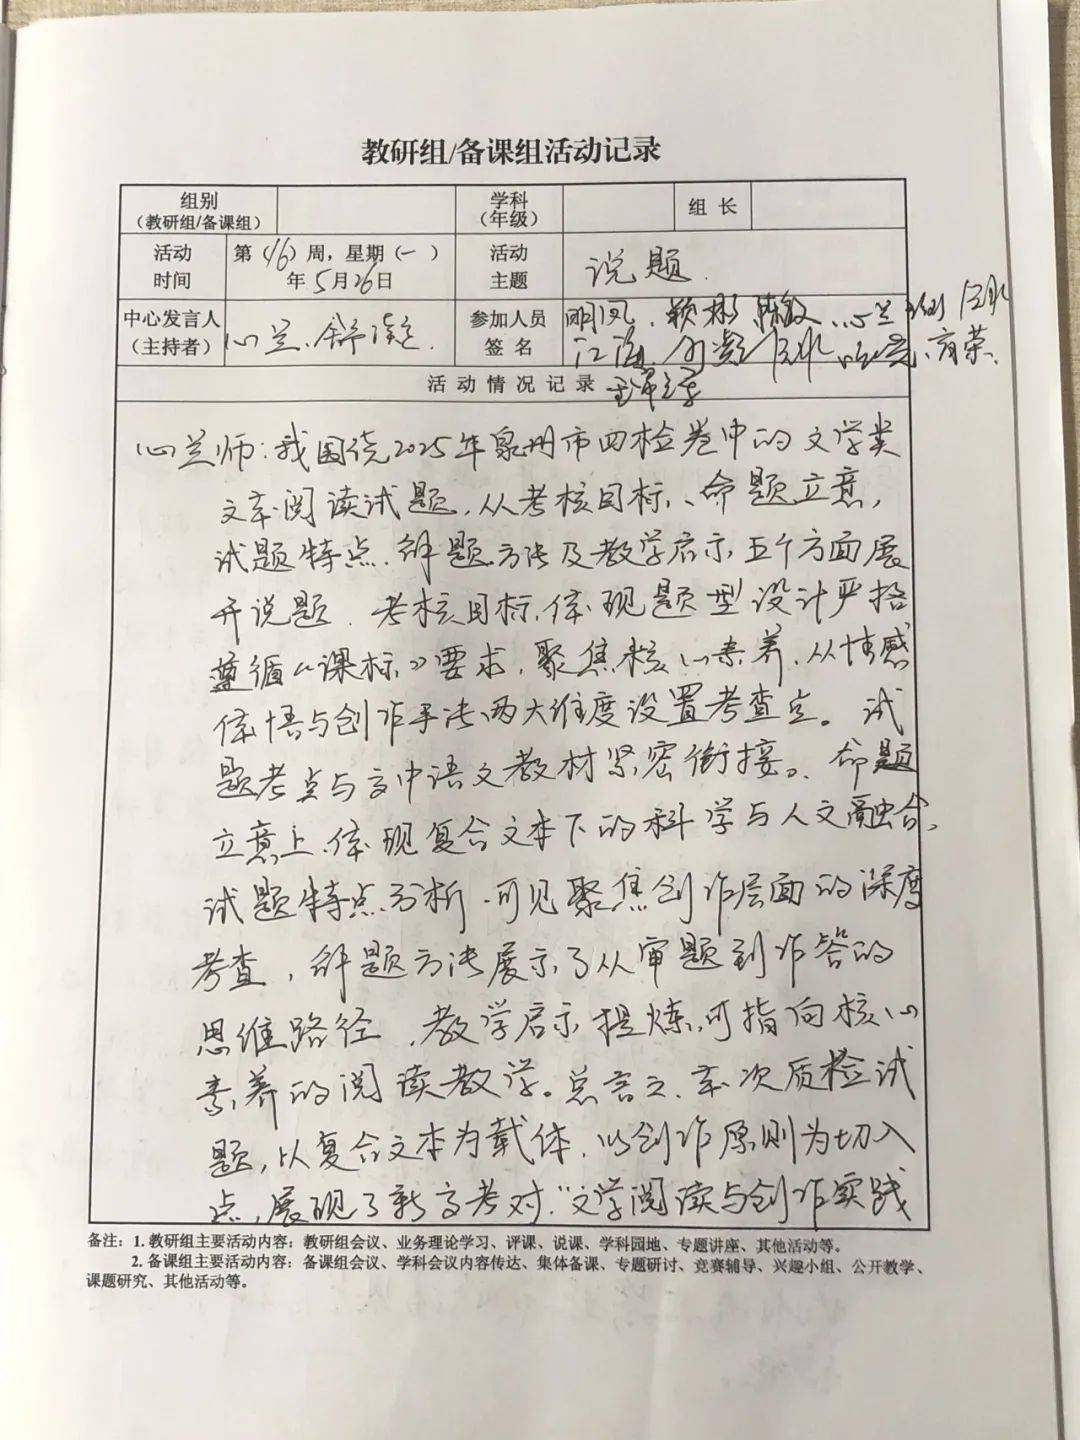 教研组/备课组活动记录
组别
(教研组/备课组)
学科
(年级)
组 长
活动
时间
第(16)周，星期(一)
年5月26日
活动
主题
说题.
中心发言人
(主持者)
心兰、舒
参加人员
签 名
明凤、颖彬 心兰
江海
活 动 情 况 记 录
心兰师：我围绕2025年泉州市四检卷中的文学类
文本阅读试题，从考核目标、命题立意，
试题特点、解题方法及教学启示五个方面展
开说题．考核目标，体现题型设计严格
遵循《课标》要求，聚焦核心素养，从情感
体悟与创作手法两大维度设置考查点。试
题考点与高中语文教材紧密衔接。命题
立意上，体现复合文本下的科学与人文融合，
试题特点分析，可见聚焦创作层面的深度
考查，解题方法展示了从审题到作答的
思维路径，教学启示提炼，可指向核心
素养的阅读教学。总言之，本次质检试
题，以复合文本为载体，以创作原则为切入
点，展现了新高考对“文学阅读与创作实践
备注：1. 教研组主要活动内容：教研组会议、业务理论学习、评课、说课、学科园地、专题讲座、其他活动等。
2. 备课组主要活动内容：备课组会议、学科会议内容传达、集体备课、专题研讨、竞赛辅导、兴趣小组、公开教学、
课题研究、其他活动等。